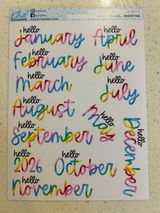 hello
January
hello
April
hello
February
hello
June
hello
March
hello
July
hello
August
hello
May
hello
September
hello
December
hello
2026
hello
October
hello
November